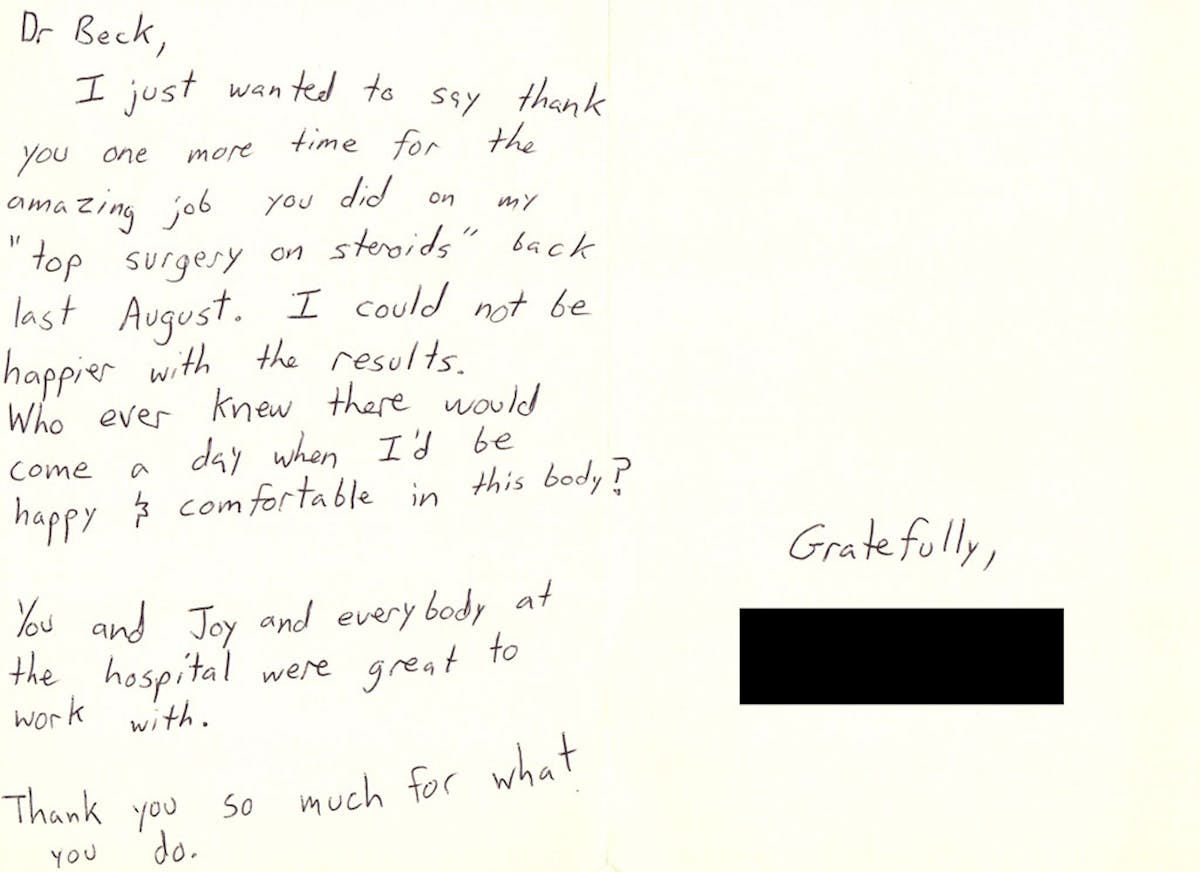 Dr Beck,
I just wanted to say thank
you one more time for the
amazing job you did on my
"top surgery on steroids" back
last August. I could not be
happier with the results.
Who ever knew there would
come a day when I'd be
happy & comfortable in this body?
You and Joy and everybody at
the hospital were great to
work with.
Thank you so much for what
you do.
Gratefully,